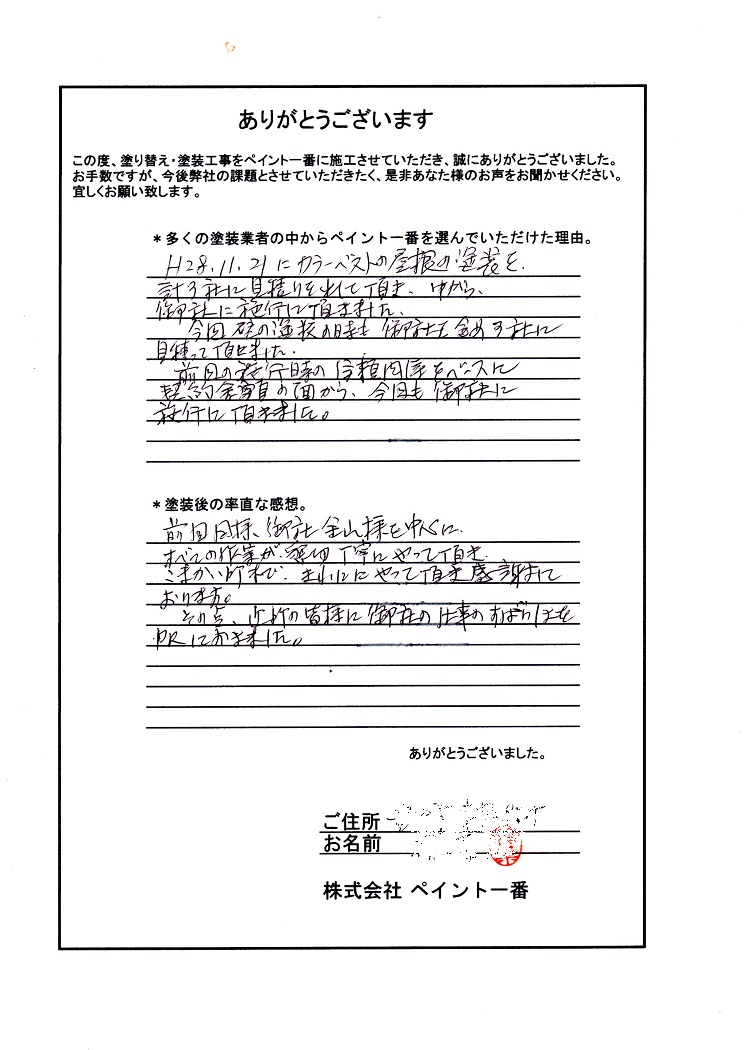 ありがとうございます
この度、塗り替え・塗装工事をペイント一番に施工させていただき、誠にありがとうございました。
お手数ですが、今後弊社の課題とさせていただきたく、是非あなた様のお声をお聞かせください。
宜しくお願い致します。
＊多くの塗装業者の中からペイント一番を選んでいただけた理由。
H28.11.21にカラーベストの屋根の塗装を、
計3社に見積りをして頂き、中から、
御社に施行して頂きました。
今回 の塗装の時も御社を含め3社に
見積って頂きました。
前回の施行時の信頼関係をベースに
契約金額の面から、今回も御社に
施行して頂きました。
＊塗装後の率直な感想。
前回同様、御社金山様を中心に
すべての作業が親切丁寧にやって頂き、
こまかい所まで、きれいにやって頂き感謝して
おります。
その点、近所の皆様に御社の仕事のすばらしさを
PRしておきました。
ありがとうございました。
ご住所
お名前
株式会社 ペイント一番